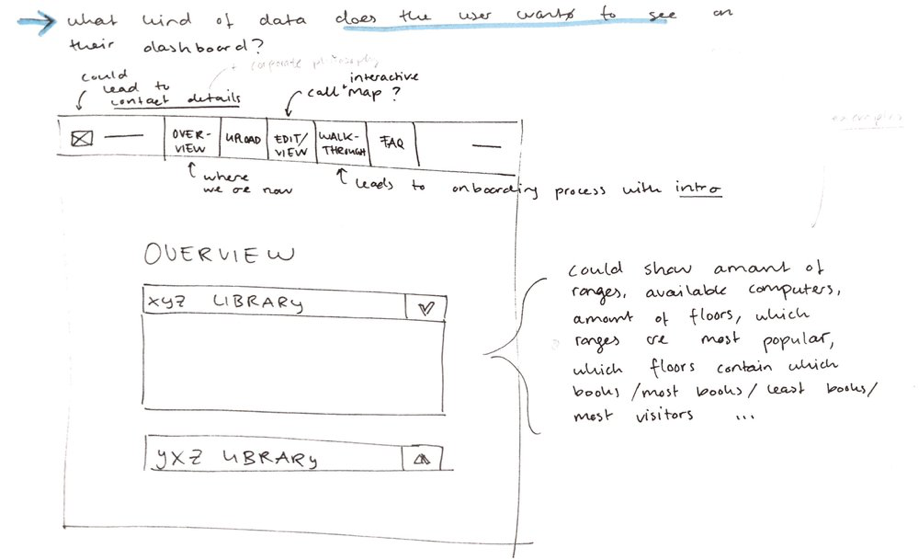 what kind of data does the user wants to see on
their dashboard?
could
lead to
contact details
interactive
call + map ?
OVER-
VIEW
UPLOAD
EDIT/
VIEW
WALK-
THROUGH
FAQ
where
we are now
leads to onboarding process with intro
OVERVIEW
xyz LIBRARY
could show amant of
ranges, available computers,
amount of floors, which
ranges are most popular,
which floors contain which
books / most books / least books /
most visitors ...
yxz LIBRARY